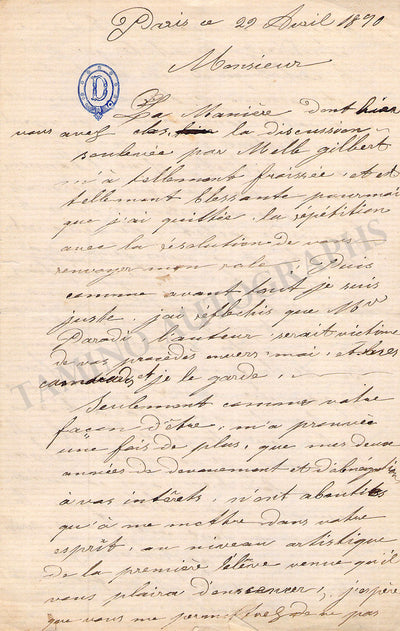 Paris ce 29 Avril 1870
Monsieur
D
La Manière dont hier
vous avez clos la discussion
soulevée par Melle gilbert
m'a tellement froissée, et est
tellement blessante pour moi
que j'ai quittée, la répétition
avec la résolution de vous
renvoyer mon role. Puis
comme avant tout je suis
juste. j'ai réflechis que Mr
Parodi l'auteur serait victime
de vos procédés envers moi, et
camarades, et je le garde.
Seulement comme votre
façon d'être, m'a prouvée
une fois de plus, que mes deux
années de devouement et d'abnégation
à vos intérêts, n'ont aboutits
qu'à me mettre dans votre
esprit, au niveau artistique
de la première élève venue qu'il
vous plaira d'encenser, j'espère
que vous me permettrez de ne pas
TAMINO AUTOGRAPHS